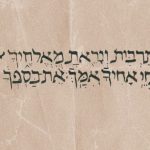 תַרְבִּית וְיָרֵאתָ מֵאֱלֹהֶיךָ
חֵי אָחִיךָ עִמָּךְ אֶת כַּסְפְּךָ